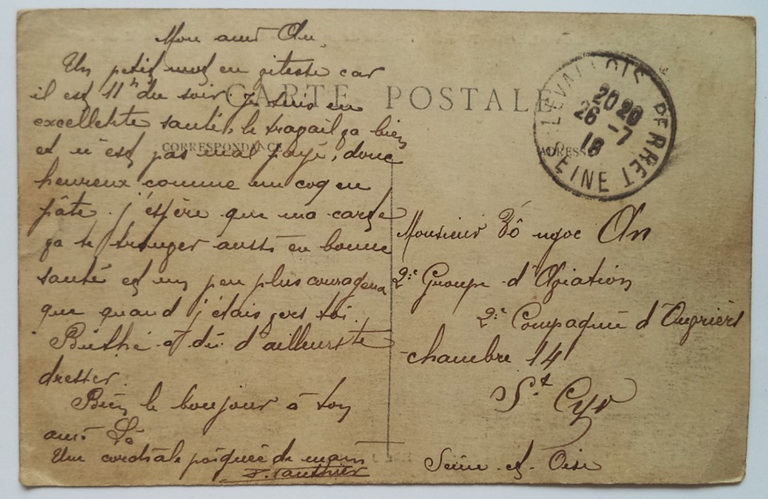 Mon ami An,
Un petit mot en vitesse car
il est 11h du soir, je suis en
excellente santé, le travail ça bien
et n'est pas mal payé, donc
heureux comme un coq en
pâte. j'espère que ma carte
ça te trouver aussi en bonne
santé et un peu plus courageux
que quand j'étais vers toi.
Buthé a dû d'ailleurs te
dresser.
Bien le bonjour à ton
ami Lê
Une cordiale poignée de main
CARTE POSTALE
CORRESPONDANCE
ADRESSE
LEVALLOIS PERRET
20 20
26 - 7
18
SEINE
Monsieur Võ ngoc An
2e Groupe d'Aviation
2e Compagnie d'Ouvriers
chambre 14
St Cyr
Seine et Oise